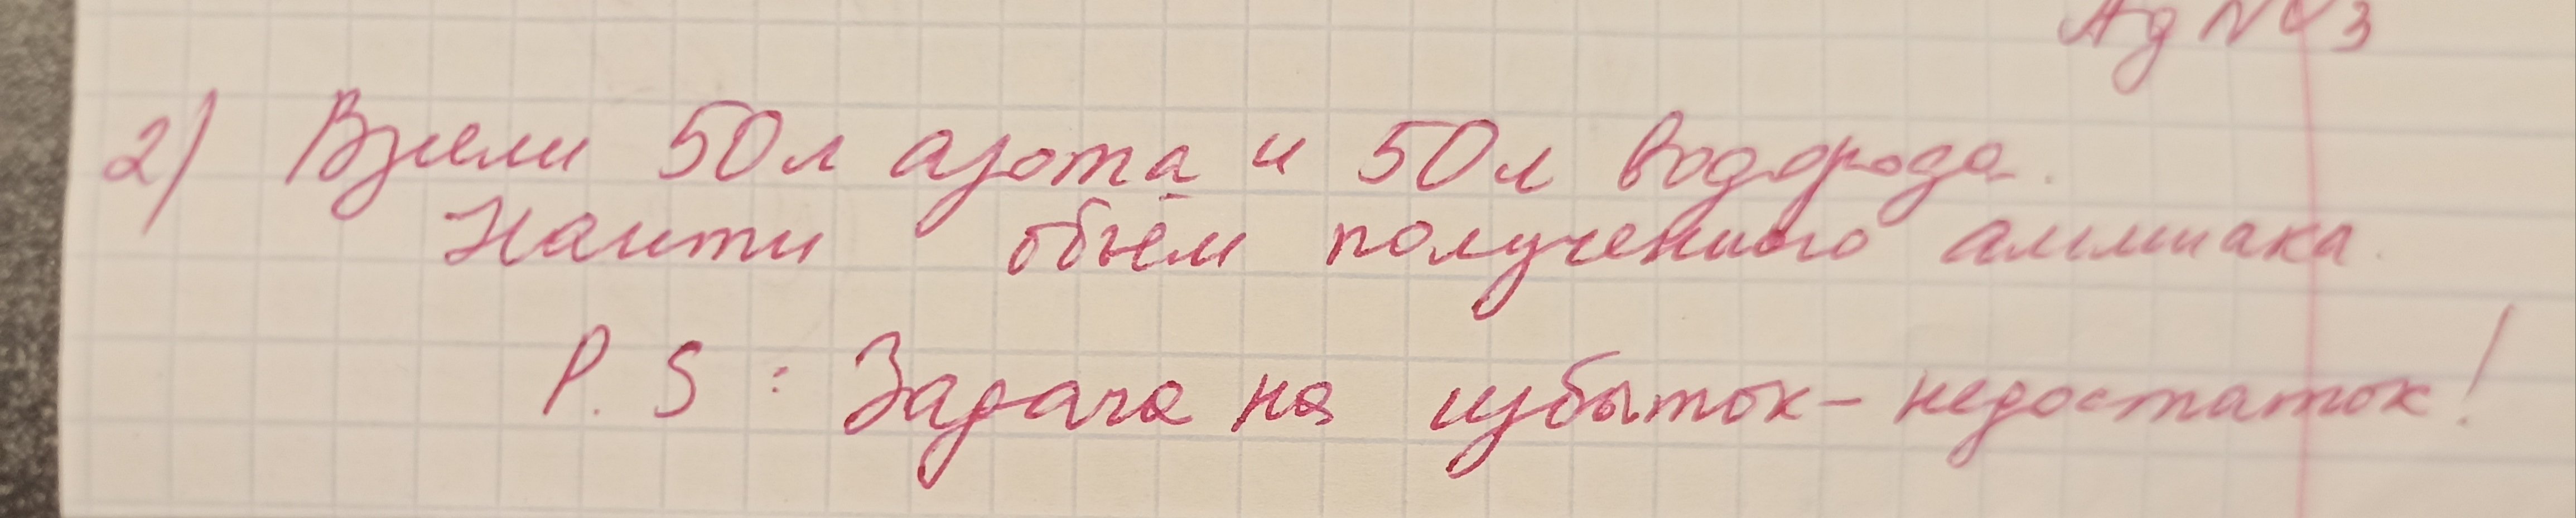 AgNO3
2) Взяли 50л азота и 50л водорода.
Найти объём полученного аммиака.
P.S: Задача на избыток-недостаток!